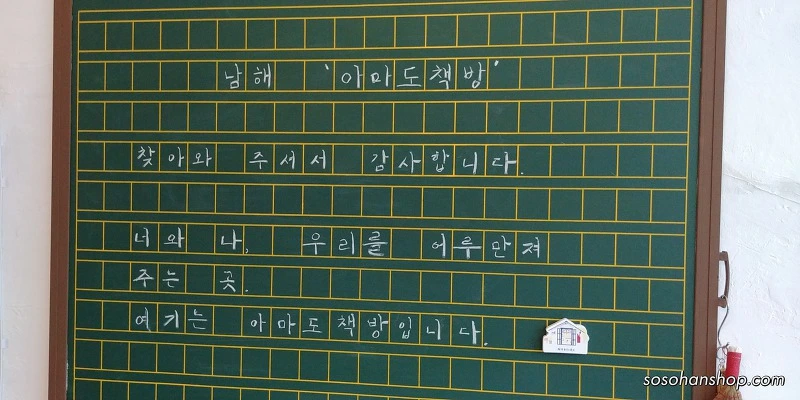 남해 '아마도책방'
찾아와 주셔서 감사합니다.
너와 나, 우리를 어루만져
주는 곳.
여기는 아마도책방입니다.
sosohanshop.com